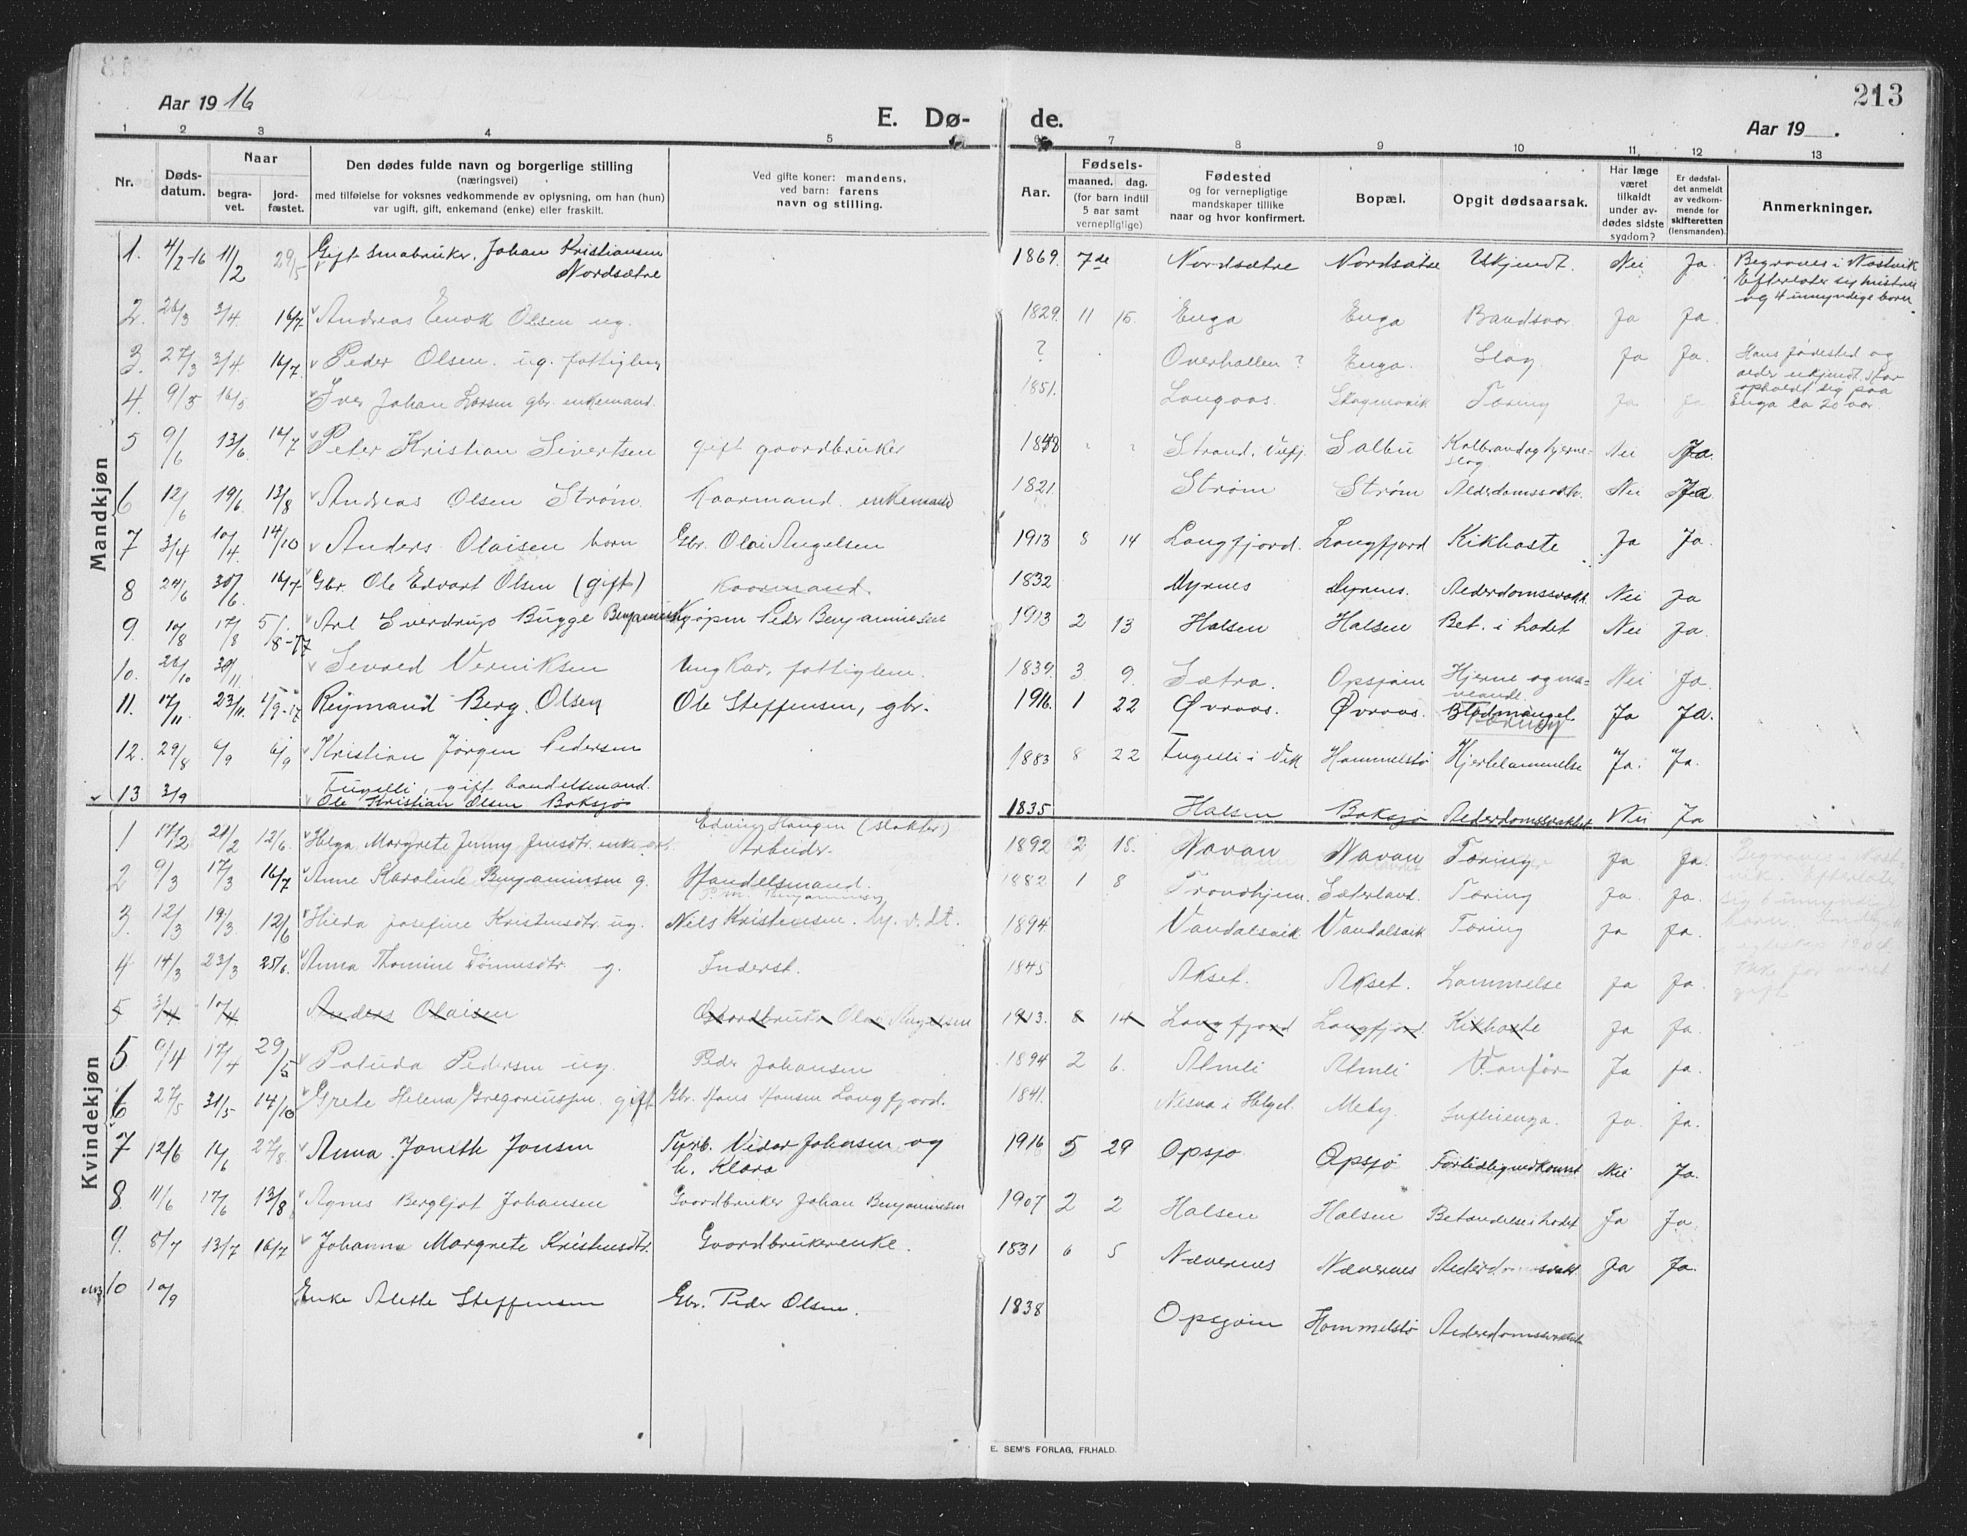 213
Aar 1916
E. Dø-
de.
Aar 19 .
1 2 3 4 5 7 8 9 10 11 12 13
Nr.
Døds-
datum.
Naar
begra-
vet.
jord-
fæstet.
Den dødes fulde navn og borgerlige stilling
(næringsvei)
med tilføielse for voksnes vedkommende av oplysning, om han (hun)
var ugift, gift, enkemand (enke) eller fraskilt.
Ved gifte koner: mandens,
ved barn: farens
navn og stilling.
Aar.
Fødsels-
maaned. dag.
(for barn indtil
5 aar samt
vernepligtige)
Fødested
og for vernepligtige
mandskaper tillike
naar og hvor konfirmert.
Bopæl.
Opgit dødsaarsak.
Har læge
været
tilkaldt
under av-
dødes sidste
sygdom?
Er dødsfal-
det anmeldt
av vedkom-
mende for
skifteretten
(lensmanden).
Anmerkninger.
Mandkjøn
1. 4/2-16 11/2 29/5 Gift Smabruker, Johan Kristiansen
Nordsætre
1869. 7de Nordsætre Nordsætre Ukjendt. Nei Ja.
2. 26/3 3/4 16/7 Andreas Enok Olsen ug. 1829. 11 15. Enga Enga Ja Ja.
3. 27/3 3/4 16/7 Peder Olsen. ug. fattiglem ? Overhallen ? Enga. Slag. Ja Ja. Hans fødested og
alder ukjendt. Har
opholdt sig paa
Enga ca 20 aar.
4. 9/5 16/5 Iver Johan Larsen gbr. enkemand. 1851. Langaas. Tæring Ja Ja
5 9/6 13/6. 16/7 Peter Kristian Sivertsen gift gaardbruker 1848 " " Strand, Salbu Nei Ja.
6 12/6 19/6. 13/8 Andreas Olsen Strøm. Kaarmand. enkemand 1821. Strøm Strøm Alderdomssvakh. Nei Ja
7 3/4 10/4. 14/10 Anders Olaisen barn Gbr. Olai Angelsen 1913 8 14 Langfjord. Langfjord Kikhoste Ja Ja.
8 24/6 30/6. 16/7 Gbr. Ole Edvart Olsen (gift) Kaarmand. 1832 Myrnes Myrnes. Alderdomssvakh. Nei Ja
9. 10/8 17/8 5/8-17 Arl Sverdrup Bugge Benjaminsen Peder Benjaminsen 1913 2 13 Halsen Halsen Bet. i hodet Nei Ja.
10. 26/10 30/11 Sevald Veriksen Ungkar, fattiglem. 1839. 3. 9. Sætra. Opsjøin Nei Ja.
11. 17/11 23/11. 1/9-17 Reymand Berg. Olsen Ole Steffensen, gbr. 1916. 1 22 Øvraas. Øvraas. Blodmangel Ja Ja.
12. 29/8 6/9 6/9 Kristian Jørgen Pedersen
Fugelli, gift handelsmand.
1883 8 22 Fugelli i Vik Hommelstø Hjertelammelse Ja. Ja.
13 3/9 Ole Kristian Olsen Boksjø 1835 Halsen Boksjø Alderdomssvakhet Nei Ja
Kvindekjøn
1 17/2 21/2 12/6. Helga Margrete Jenny Jensdtr. Arbeider. 1892 2 18. Navan Navan Tæring Ja Ja.
2 9/3 17/3 16/7 Anne Karoline Benjaminsen g. Handelsmand. 1882 1 8 Trondhjem. Sæterland. Tæring Ja. Ja.
3. 12/3 19/3. 12/6 Hilda Josefine Kristensdtr. ug. Nels Kristensen. 1894 Vandalsvik Vandalsvik Tæring Ja Ja.
4 14/3 23/3 25/6. Anna Thomine g. Inderst. 1845 Akset. Akset. Lammelse Ja Ja.
5 3/4 10/4 Anders Olaisen Gaardbruker Olai Angelsen 1913. 8 14 Langfjord Langfjord Kikhoste Ja Ja.
5. 9/4 17/4 29/5 Paluda Pedersen ug. Peder Johansen 1894 2 6. Almli Almli Vanfør Ja Ja.
6 27/5 31/5 14/10 Grete Helena Gregoriussen. gift Gbr. Hans Hansen Langfjord. 1841. Nesna i Helgel. Meby. Influenga. Ja. Ja.
7 12/6 16/6 27/8. Anna Janeth Jonsen Vidar Johansen og
h. Klara
1916 5 29 Opsjø Opsjø Fortidlig nedkomst Nei Ja.
8. 11/6 17/6 13/8 Agnes Bergljot Johansen Gaardbruker Johan Benjaminsen 1907 2 2 Halsen Halsen Betændelse i hodet Ja Ja.
9. 8/7 13/7 16/7 Johanna Margrete Kristensdtr. Gaardbrukerenke. 1831 6 5 Nævernes Nævernes Alderdomssvakh. Ja Ja.
10 10/9 Enke Alette Steffensen Gbr. Peder Olsen. 1838 Opsjøin Hommelstø Alderdomssvakhet
E. SEM'S FORLAG, FR.HALD.